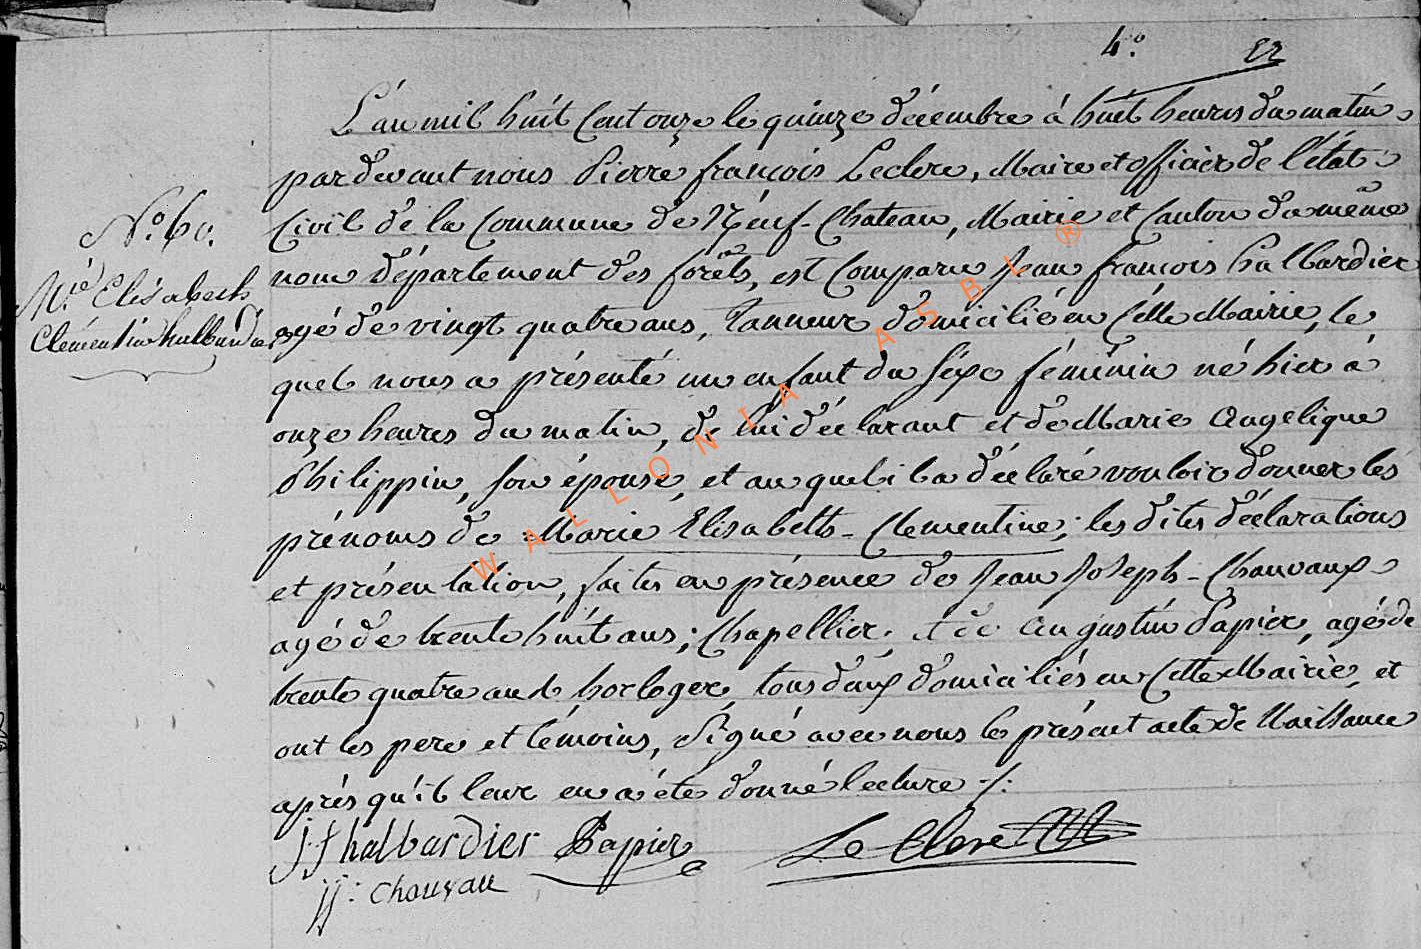 4.º
L'an mil huit Cent onze le quinze décembre à huit heures du matin,
pardevant nous Pierre françois Leclerc, Maire et officier de l'état
Civil de la Commune de Neuf-Chateau, Mairie et Canton du même
nom département des forêts, est Comparu Jean françois halbardier
agé de vingt quatre ans, Tanneur domicilié en Cette Mairie, le
quel nous a présenté un enfant du Sexe féminin né hier à
onze heures du matin, de lui déclarant et de Marie Angelique
Philippin, son épouse, et au quel il a déclaré vouloir donner les
prénoms de Marie Elisabeth-Clementine; les dites déclarations
et présentation, faites en présence de Jean Joseph-Chauvaux
agé de trente huit ans, Chapellier, et de Augustin Papier, agé de
trente quatre ans, horloger, tous deux domiciliés en Cette Mairie, et
ont les pere et témoins, Signé avec nous le présent acte de Naissance
après qu'il leur en a été donné lecture ./.
N.º 60.
M.ie Elisabeth
Clémentine halbardier
jf halbardier Papier Le Clerc
jj: Chauvau
WALLONIA ASBL ®